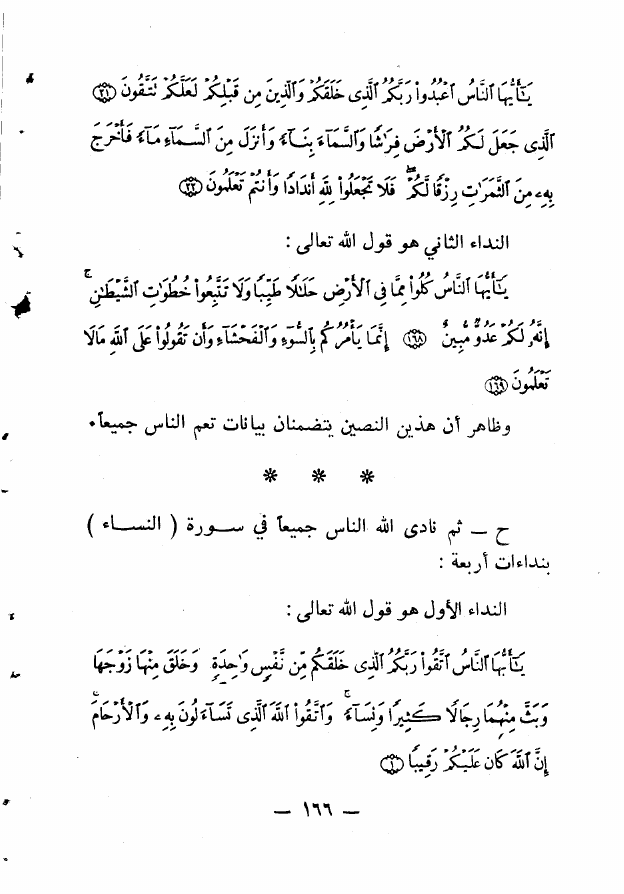 يَـٰٓأَيُّهَا ٱلنَّاسُ ٱعْبُدُوا۟ رَبَّكُمُ ٱلَّذِى خَلَقَكُمْ وَٱلَّذِينَ مِن قَبْلِكُمْ لَعَلَّكُمْ تَتَّقُونَ ﴿٢١﴾
ٱلَّذِى جَعَلَ لَكُمُ ٱلْأَرْضَ فِرَٰشًا وَٱلسَّمَآءَ بِنَآءً وَأَنزَلَ مِنَ ٱلسَّمَآءِ مَآءً فَأَخْرَجَ
بِهِۦ مِنَ ٱلثَّمَرَٰتِ رِزْقًا لَّكُمْ ۖ فَلَا تَجْعَلُوا۟ لِلَّهِ أَندَادًا وَأَنتُمْ تَعْلَمُونَ ﴿٢٢﴾
النداء الثاني هو قول الله تعالى :
يَـٰٓأَيُّهَا ٱلنَّاسُ كُلُوا۟ مِمَّا فِى ٱلْأَرْضِ حَلَـٰلًا طَيِّبًا وَلَا تَتَّبِعُوا۟ خُطُوَٰتِ ٱلشَّيْطَـٰنِ ۚ
إِنَّهُۥ لَكُمْ عَدُوٌّ مُّبِينٌ ﴿١٦٨﴾ إِنَّمَا يَأْمُرُكُم بِٱلسُّوٓءِ وَٱلْفَحْشَآءِ وَأَن تَقُولُوا۟ عَلَى ٱللَّهِ مَا لَا
تَعْلَمُونَ ﴿١٦٩﴾
وظاهر أن هذين النصين يتضمنان بيانات تعم الناس جميعاً.
* * *
ح ــ ثم نادى الله الناس جميعاً في سورة ( النساء )
بنداءات أربعة :
النداء الأول هو قول الله تعالى :
يَـٰٓأَيُّهَا ٱلنَّاسُ ٱتَّقُوا۟ رَبَّكُمُ ٱلَّذِى خَلَقَكُم مِّن نَّفْسٍ وَٰحِدَةٍ وَخَلَقَ مِنْهَا زَوْجَهَا
وَبَثَّ مِنْهُمَا رِجَالًا كَثِيرًا وَنِسَآءً ۚ وَٱتَّقُوا۟ ٱللَّهَ ٱلَّذِى تَسَآءَلُونَ بِهِۦ وَٱلْأَرْحَامَ ۚ
إِنَّ ٱللَّهَ كَانَ عَلَيْكُمْ رَقِيبًا ﴿١﴾
— ١٦٦ —